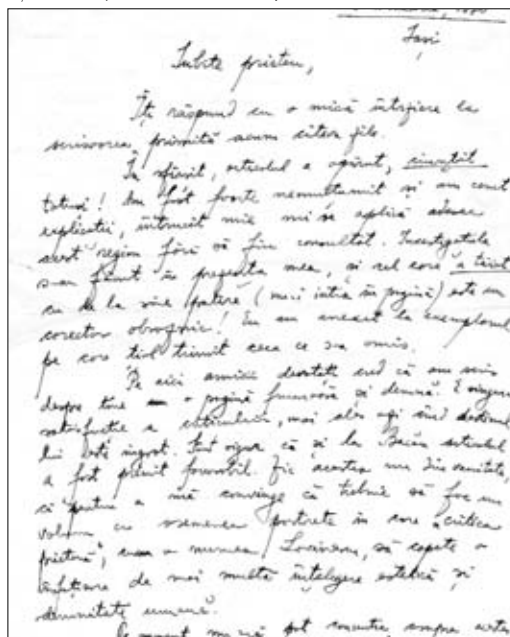 Iași
Iubite prieten,
Îți răspund cu o mică întîrziere la
scrisoarea primită acum cîteva zile.
În sfîrșit, articolul a apărut, ciuntit
totuși! Am fost foarte nemulțumit și am cerut
explicații, întrucît mie mi se aplică adesea
acest regim fără să fiu consultat. Investigațiile
s-au făcut în prezența mea, și cel care "a tăiat
cu de la sine putere" (mai intră în pagină) este un
corector obraznic! Eu am anexat la exemplarul
pe care ți-l trimit ceea ce s-a omis.
Pe aici amicii cred că am scris
despre tine o pagină frumoasă și demnă. E singura
satisfacție a criticului, mai ales azi cînd destinul
lui este ingrat. Sunt sigur că și la Bacău articolul
a fost primit favorabil. Zic acestea nu din vanitate,
ci pentru a mă convinge că trebuie să fac un
volum cu asemenea portrete în care "critica
, cum o numea Lovinescu, să capete o
de mai multă înțelegere estetică și
demnitate umană.